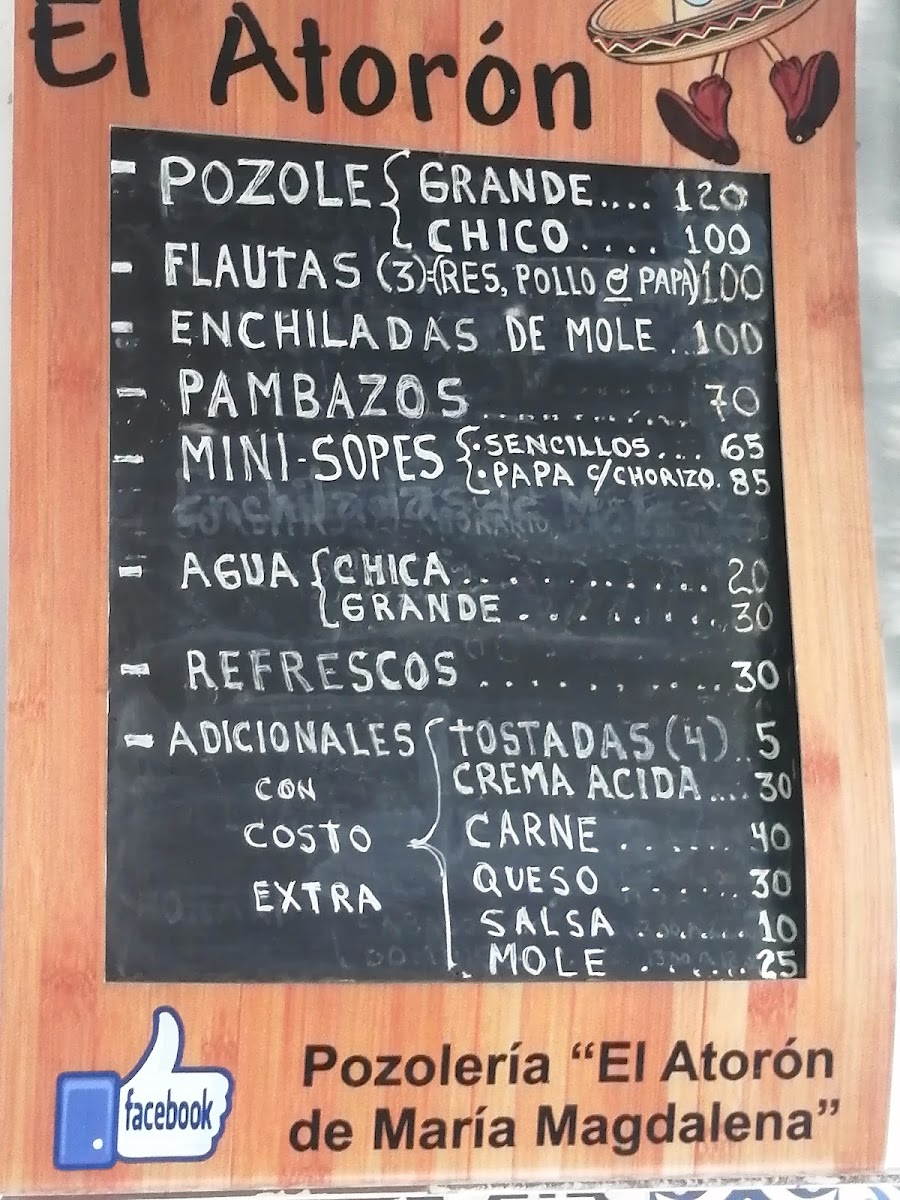 El Atorón
- POZOLE { GRANDE.... 120
CHICO.... 100
- FLAUTAS (3)=(RES, POLLO Ó PAPA) 100
- ENCHILADAS DE MOLE .. 100
- PAMBAZOS .......... 70
- MINI-SOPES { · SENCILLOS... 65
· PAPA C/CHORIZO. 85
enchiladas de Mole
HORARIO
- AGUA { CHICA ............ 20
GRANDE .......... 30
- REFRESCOS .......... 30
- ADICIONALES { TOSTADAS (4) .. 5
CON CREMA ACIDA .... 30
COSTO CARNE ....... 40
EXTRA QUESO ....... 30
SALSA ....... 10
MOLE ....... 25
facebook
Pozolería “El Atorón
de María Magdalena”